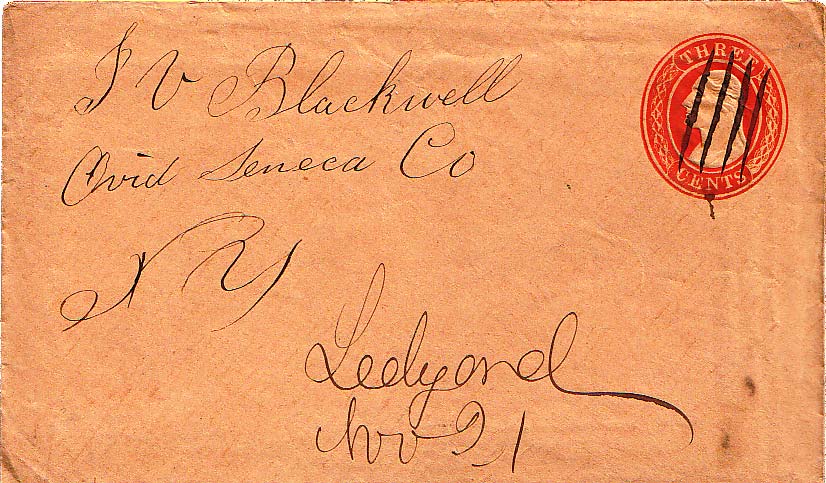 J V Blackwell
THREE
CENTS
Ovid Seneca Co
N Y
Ledyard
Nov 21